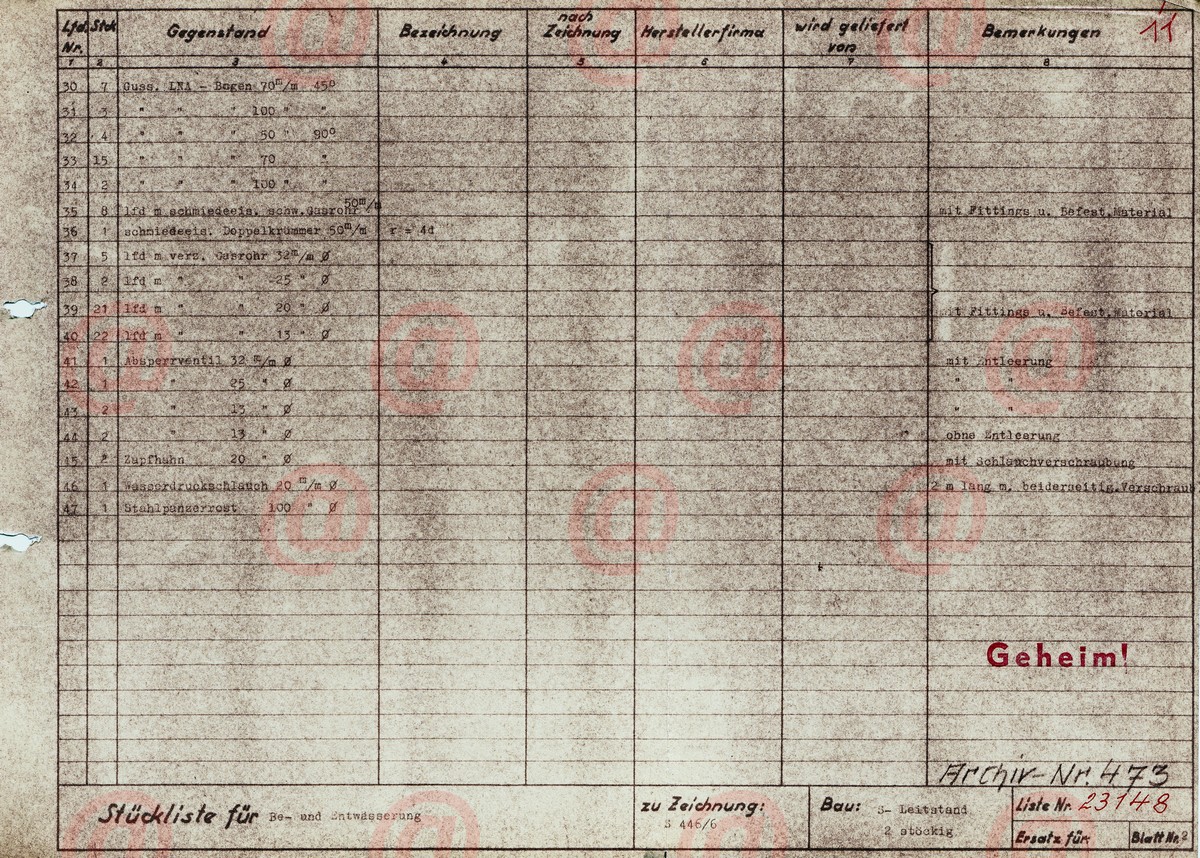 11
Lfd. Nr. Stck Gegenstand Bezeichnung nach Zeichnung Herstellerfirma wird geliefert von Bemerkungen
1 2 3 4 5 6 7 8
30 7 Guss. LNA - Bogen 70 m/m 45º
31 3 " " " 100 " "
32 4 " " " 50 " 90º
33 15 " " " 70 "
34 2 " " " 100 " "
35 8 lfd m schmiedeeis. schw.Gasrohr 50m/m mit Fittings u. Befest.Material
36 1 schmiedeeis. Doppelkrümmer 50m/m r = 4d
37 5 lfd m verz. Gasrohr 32m/m Ø
38 2 lfd m " " -25 " Ø
39 21 lfd m " " 20 " Ø mit Fittings u. Befest.Material
40 22 lfd m " " 13 " Ø
41 1 Absperrventil 32 m/m Ø mit Entleerung
42 1 " 25 " Ø " "
43 2 " 13 " Ø " "
44 2 " 13 " Ø ohne Entleerung
45 2 Zapfhahn 20 " Ø mit Schlauchverschraubung
46 1 Wasserdruckschlauch 20 m/m Ø 2 m lang m. beiderseitig.Verschraub
47 1 Stahlpanzerrost 100 " Ø
Geheim!
Archiv-Nr. 473
Stückliste für Be- und Entwässerung
zu Zeichnung: S 446/6
Bau: S- Leitstand
2 stöckig
Liste Nr. 23148
Ersatz für:
Blatt Nr. 2